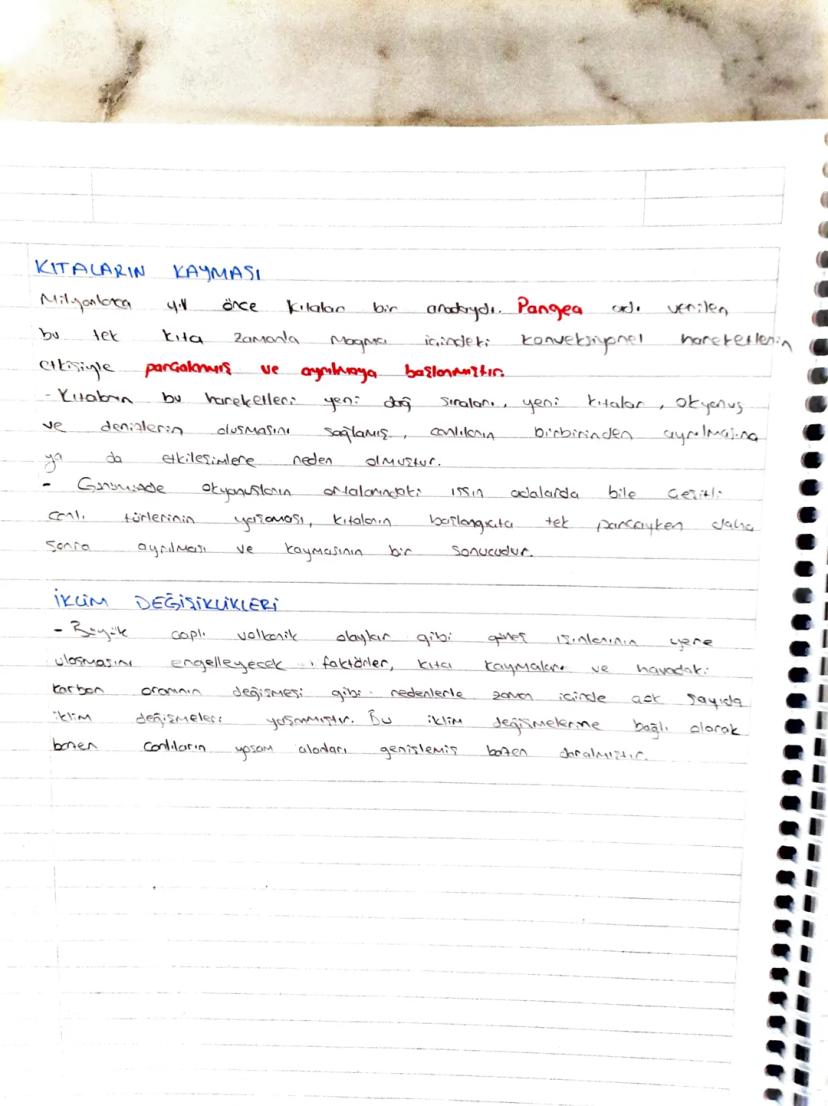 KITALARIN KAYMASI
Milyonlarca yıl önce kıtalar bir aradaydı. Pangea adı verilen
bu tek kıta zamanla magma içindeki konveksiyonel hareketlerin
etkisiyle parçalanmış ve ayrılmaya başlanmıştır.
- Kıtaların bu hareketleri yeni dağ sıraları, yeni kıtalar, okyanus
ve denizlerin oluşmasını sağlamış, canlıların birbirinden ayrılmasına
ya da etkileşimlere neden olmuştur.
- Günümüzde okyanusların ortalarındaki ıssız adalarda bile çeşitli
canlı türlerinin yaşaması, kıtaların başlangıçta tek parçayken daha
sonra ayrılması ve kaymasının bir sonucudur.
İKLİM DEĞİŞİKLİKLERİ
- Büyük çaplı volkanik olaylar gibi güneş ışınlarının yere
ulaşmasını engelleyecek faktörler, kıta kaymaları ve havadaki
karbon oranının değişmesi gibi nedenlerle zaman içinde çok sayıda
iklim değişmeleri yaşanmıştır. Bu iklim değişmelerine bağlı olarak
bazen canlıların yaşam alanları genişlemiş bazen daralmıştır.